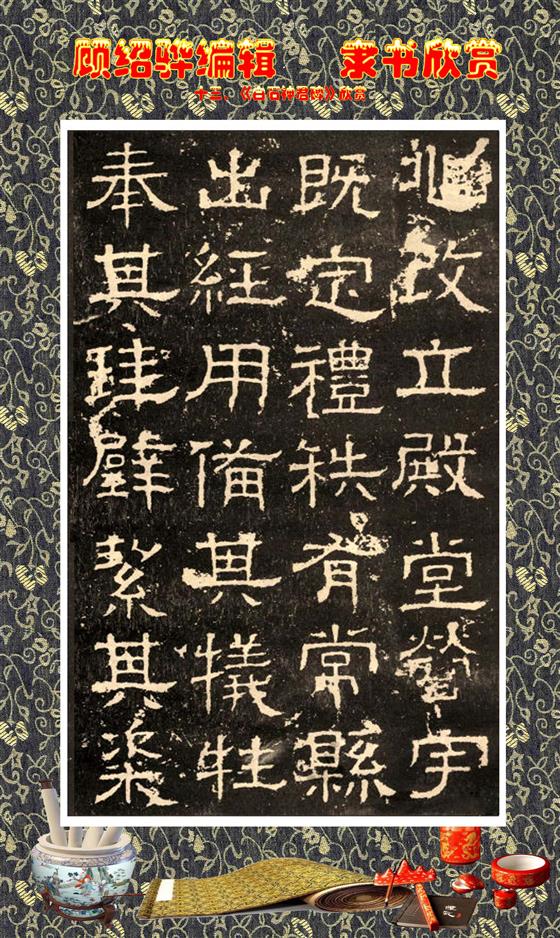 顾绍骅编辑 隶书欣赏
十三、《白石神君碑》欣赏
兆改立殿堂營宇
既定禮秩有常縣
出經用備其犧牲
奉其珪璧絜其粢